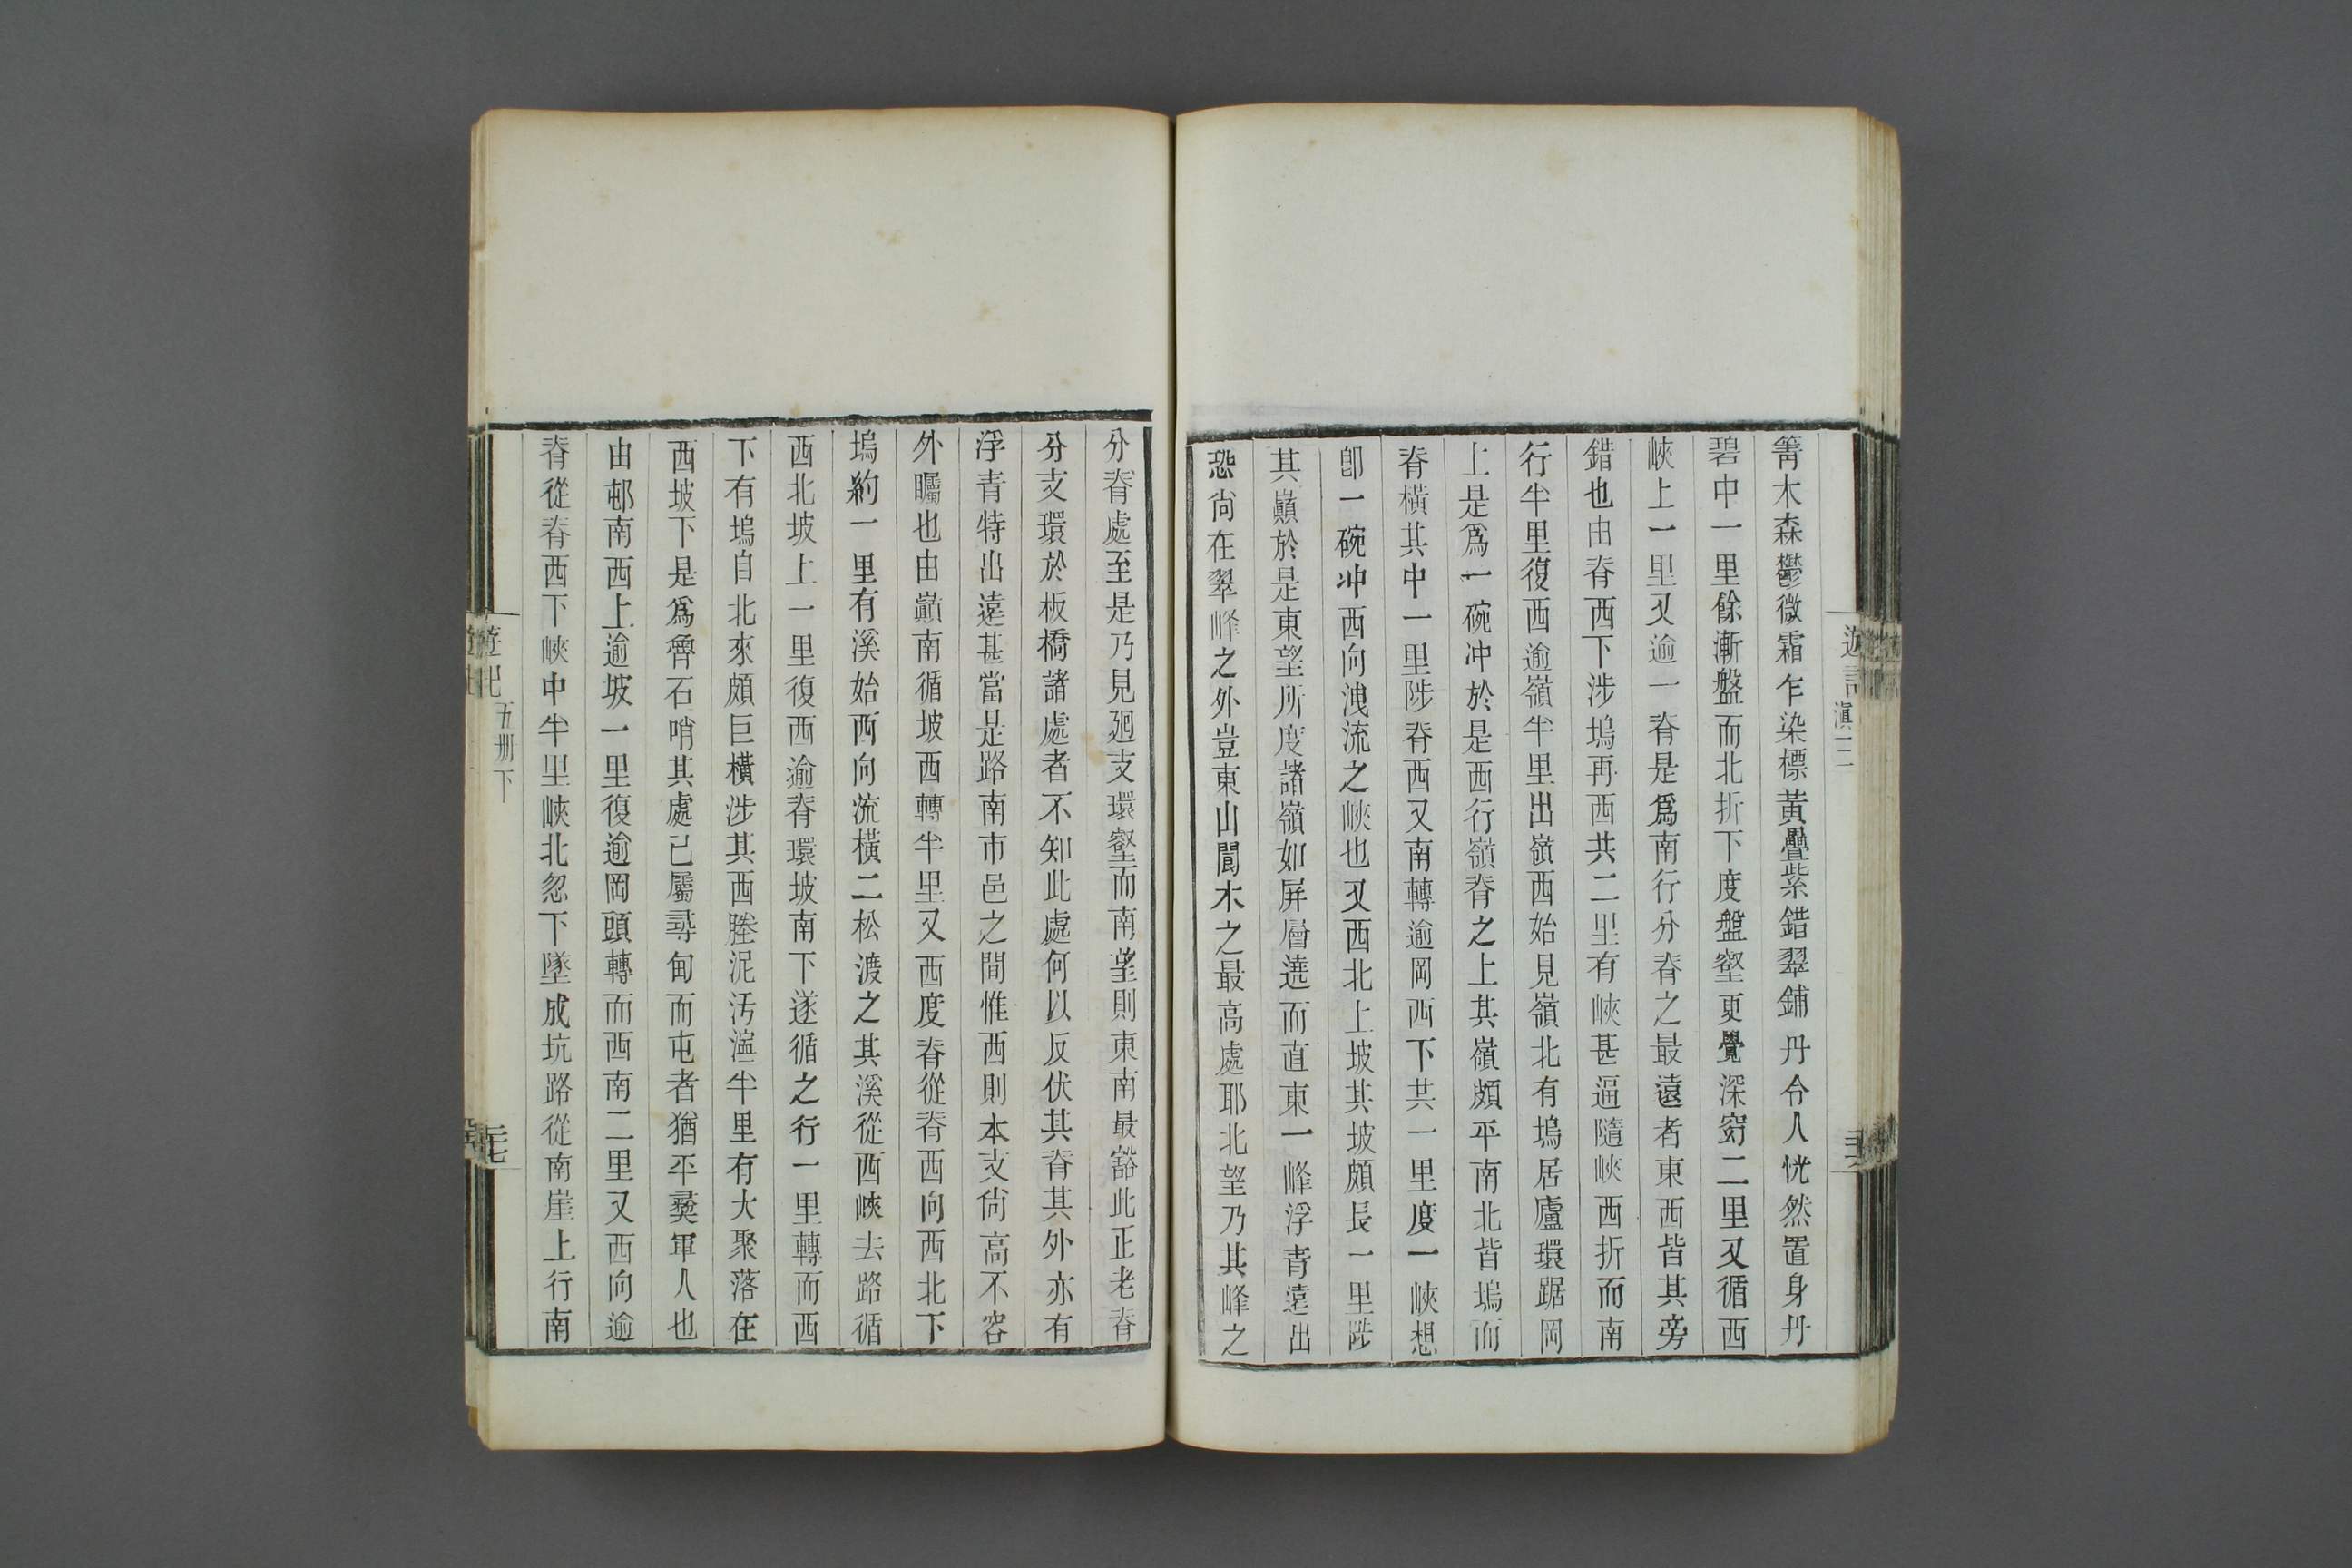 箐木森鬱微霜乍染標黃疊紫錯翠鋪丹令人恍然置身丹
碧中一里餘漸盤而北折下度盤壑更覺深窈二里又循西
峽上一里又逾一脊是爲南行分脊之最遠者東西皆其旁
錯也由脊西下涉塢再西共二里有峽甚逼隨峽西折而南
行半里復西逾嶺半里出嶺西始見嶺北有塢居廬環踞岡
上是爲一碗冲於是西行嶺脊之上其嶺頗平南北皆塢而
脊橫其中一里陟脊西又南轉逾岡西下共一里度一峽想
卽一碗冲西向洩流之峽也又西北上坡其坡頗長一里陟
其巔於是東望所度諸嶺如屏層遶而直東一峰浮青遠出
恐尙在翠峰之外豈東山閬木之最高處耶北望乃其峰之
分脊處至是乃見廻支環壑而南望則東南最豁此正老脊
分支環於板橋諸處者不知此處何以反伏其脊其外亦有
浮青特出遠甚當是路南市邑之間惟西則本支尙高不容
外矚也由巔南循坡西轉半里又西度脊從脊西向西北下
塢約一里有溪始西向流橫二松渡之其溪從西峽去路循
西北坡上一里復西逾脊環坡南下遂循之行一里轉而西
下有塢自北來頗巨橫涉其西塍泥汚湓半里有大聚落在
西坡下是爲奝石哨其處已屬尋甸而屯者猶平彝軍人也
由邨南西上逾坡一里復逾岡頭轉而西南二里又西向逾
脊從脊西下峽中半里峽北忽下墜成坑路從南崖上行南
遊記
滇三
遊記
五册下